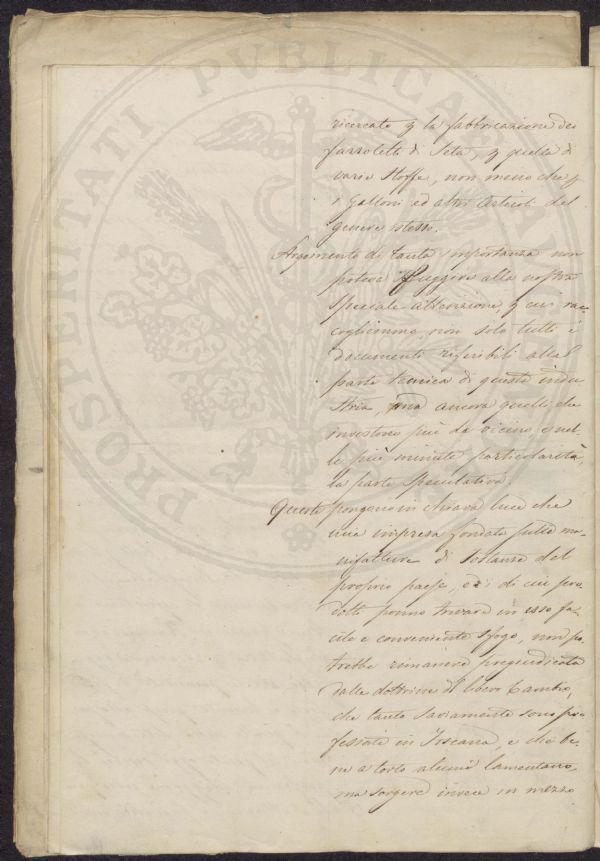 ricercato p la fabbricazione dei
fazzoletti di Seta, p quella di
varie Stoffe, non meno che p
i Galloni ed altri Articoli del
genere stesso.
Argomento di tanta importanza non
poteva sfuggire alla nostra
speciale attenzione, p cui rac-
cogliemmo non solo tutti i
documenti riferibili alla
parte tecnica di questa indu
stria, ma ancora quelli che
investono più da vicino, e nel-
le più minute particolarità,
la parte speculativa.
Questi pongono in chiara luce che
una impresa fondata sulla ma-
nifattura di sostanze del
proprio paese, ed i di cui pro-
dotti ponno trovare in esso fa-
cile e conveniente sfogo, non po-
trebbe rimanere pregiudicata
dalle dottrine di libero Cambio,
che tanto saviamente sono pro-
fessate in Toscana, e che be-
ne a torto alcuni lamentano,
ma sorgere invece in mezzo
PROSPERITATI PVBLICAE